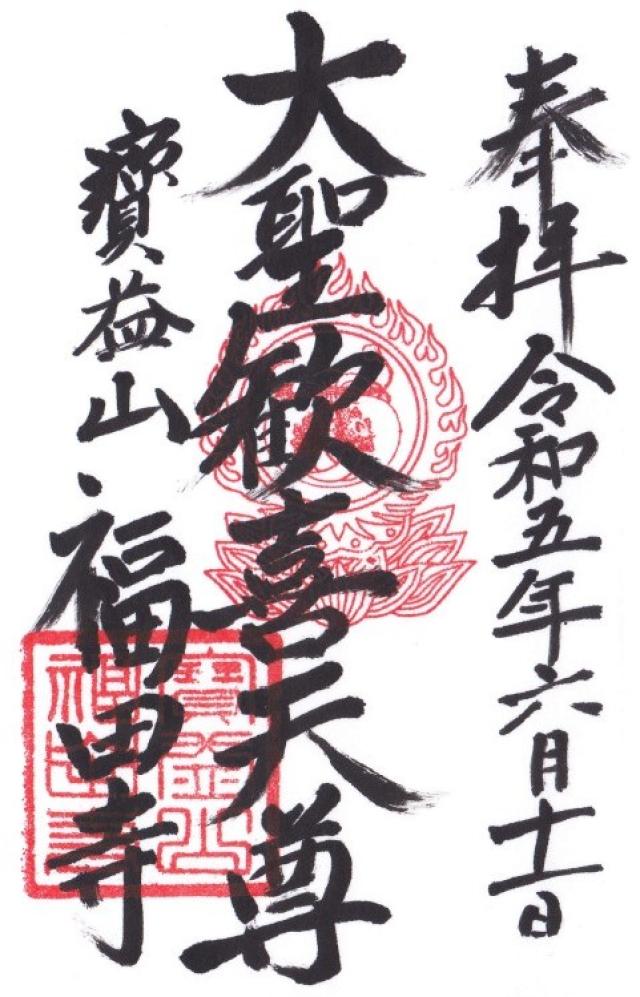 奉拝 令和五年六月十一日
大聖歓喜天尊
寶益山 福田寺
寶益山
福田寺